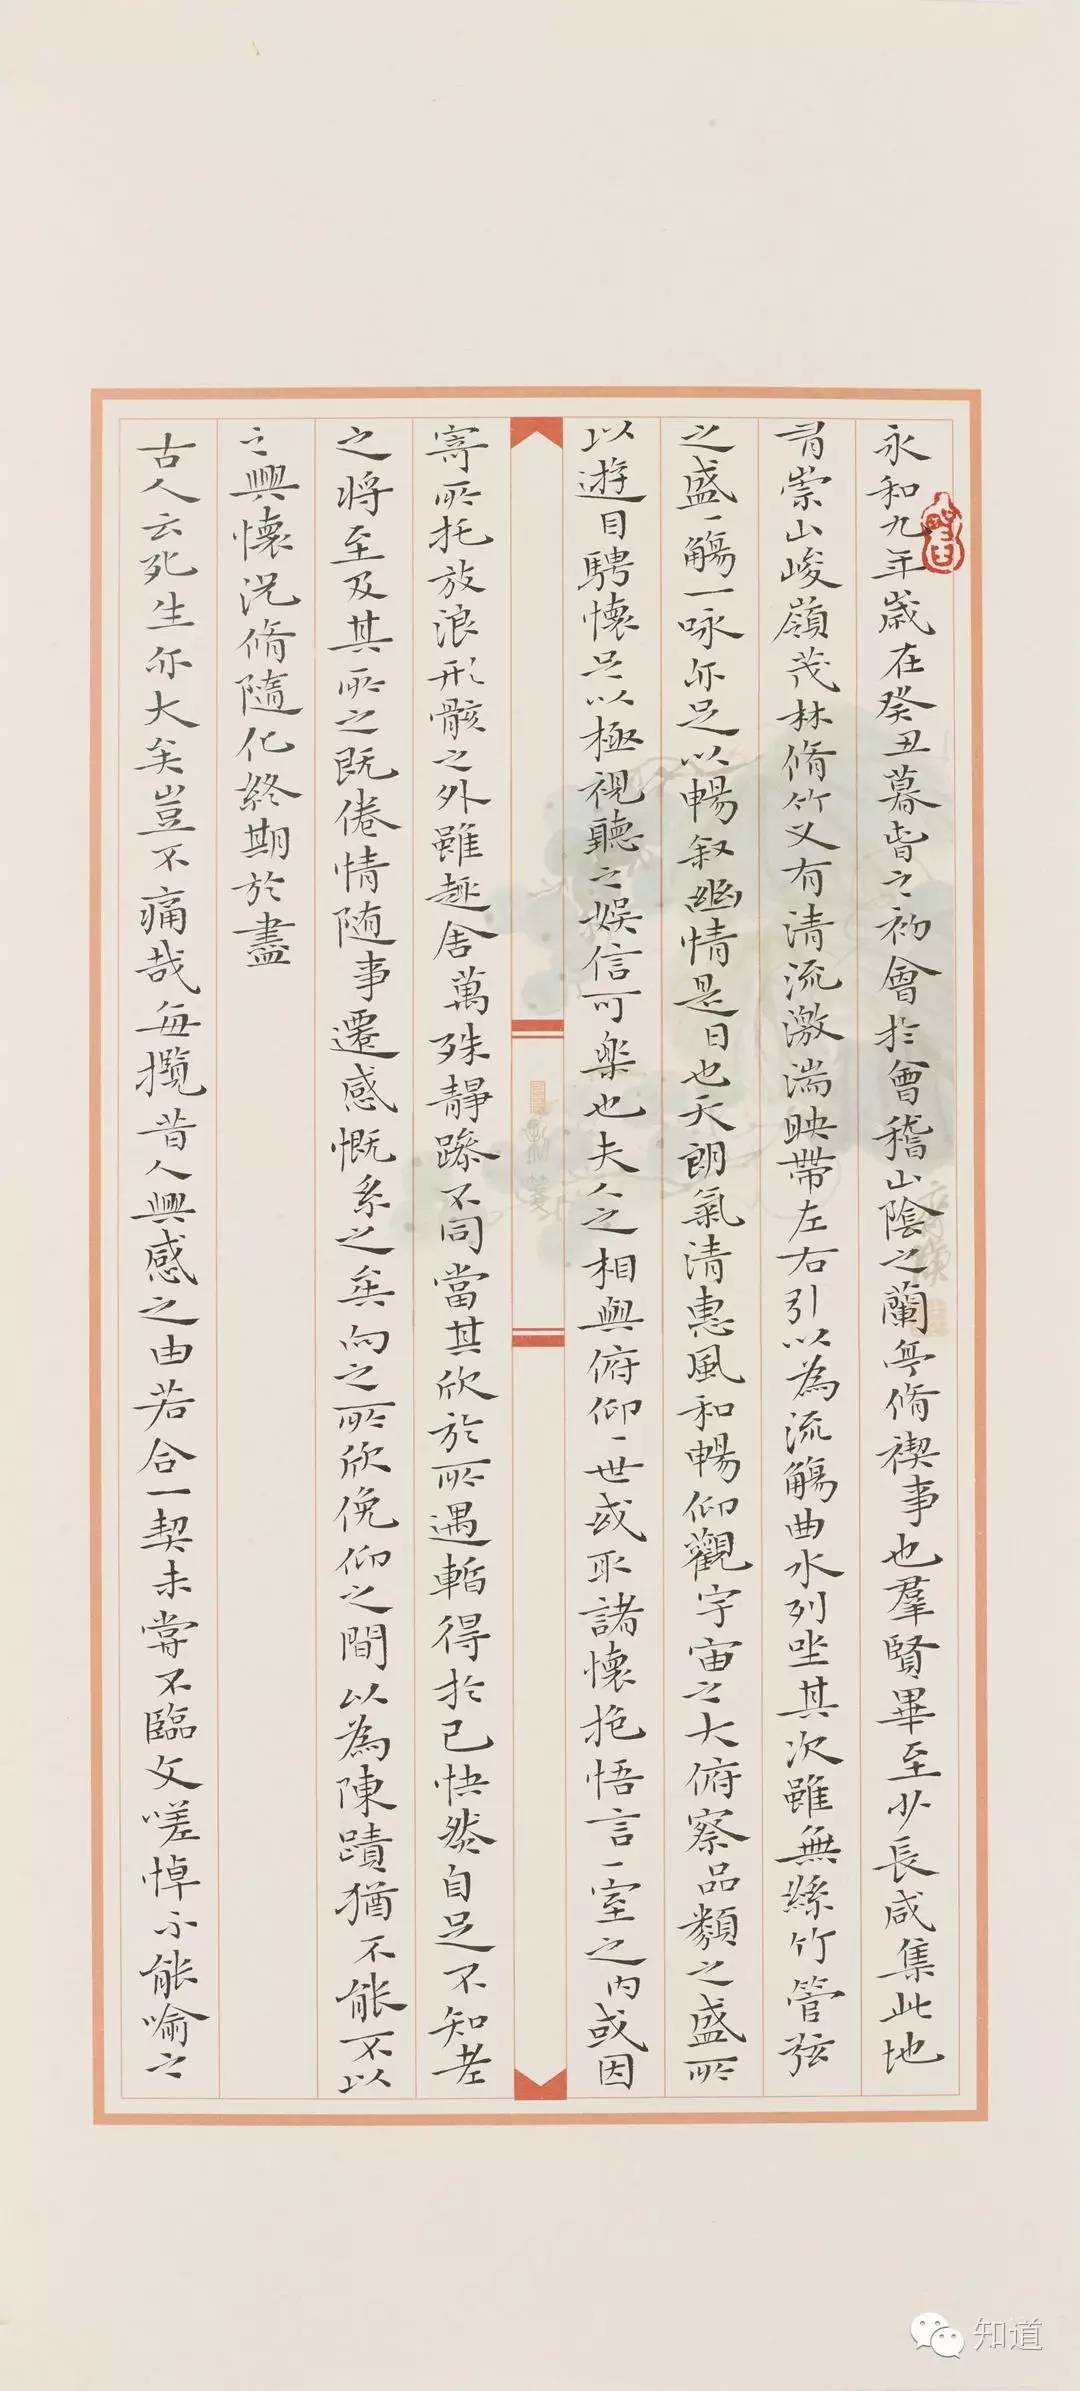 永和九年歲在癸丑暮春之初會於會稽山陰之蘭亭脩禊事也羣賢畢至少長咸集此地
有崇山峻嶺茂林脩竹又有清流激湍映帶左右引以為流觴曲水列坐其次雖無絲竹管弦
之盛一觴一咏亦足以暢叙幽情是日也天朗氣清惠風和暢仰觀宇宙之大俯察品類之盛所
以遊目騁懷足以極視聽之娱信可樂也夫人之相與俯仰一世或取諸懷抱悟言一室之内或因
寄所托放浪形骸之外雖趣舍萬殊靜躁不同當其欣於所遇暫得於己快然自足不知老
之將至及其所之既倦情随事遷感慨系之矣向之所欣俛仰之間以為陳蹟猶不能不以
之興懷况脩隨化終期於盡
古人云死生亦大矣豈不痛哉每攬昔人興感之由若合一契未嘗不臨文嗟悼不能喻之
知道